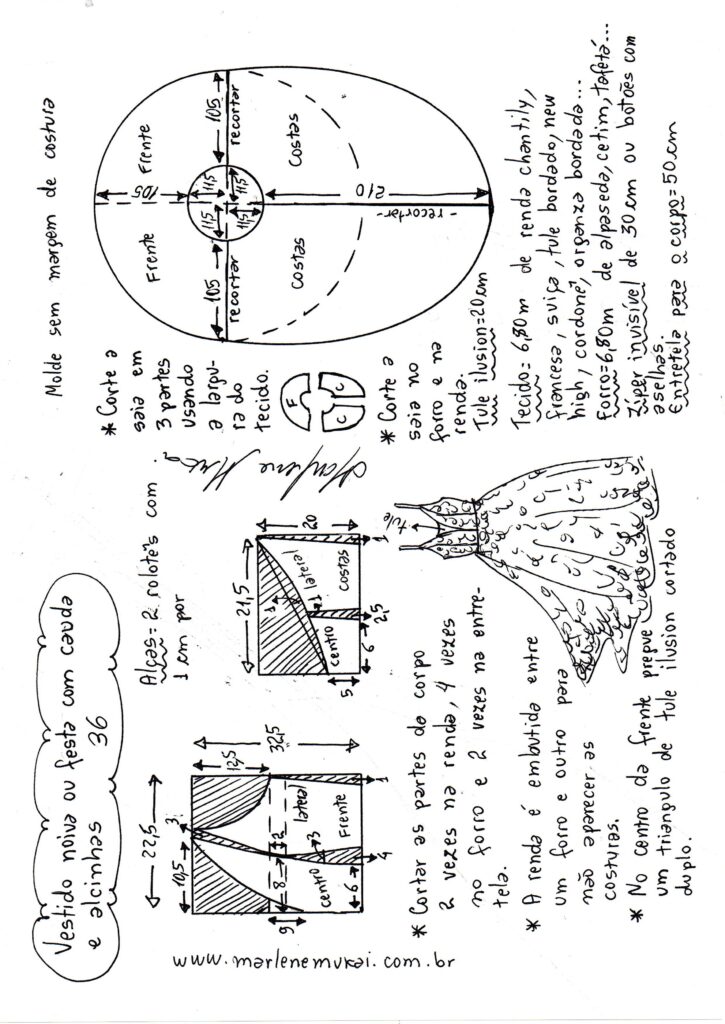 Vestido noiva ou festa com cauda
e alcinhas 36
22,5
3
10,5
12,5
32,5
8
2
9
lateral
centro
3
Frente
6
4
1
www.marlenemukai.com.br
Alças= 2 rolotês com
1 cm por
21,5
20
1
1
lateral
centro
costas
5
6
2,5
1
* Cortar as partes do corpo
2 vezes na renda, 4 vezes
no forro e 2 vezes na entre-
tela.
* A renda é embutida entre
um forro e outro para
não aparecer as
costuras.
* No centro da frente pregue
um triangulo de tule ilusion cortado
duplo.
tule
Marlene Mukai
Molde sem margem de costura
* Corte a
saia em
3 partes
usando
a largu-
ra do
tecido.
F
C
C
* Corte a
saia no
forro e na
renda.
Tule ilusion=20cm
Frente
Frente
105
105
recortar
11,5
11,5
11,5
11,5
105
recortar
Costas
Costas
210
-recortar-
Tecido= 6,80m de renda chantily,
francesa, suiça, tule bordado, new
high, cordonê, organza bordada...
Forro=6,80m de alpaseda, cetim, tafetá...
Zíper invisível de 30cm ou botões com
aselhas.
Entretela para o corpo=50cm